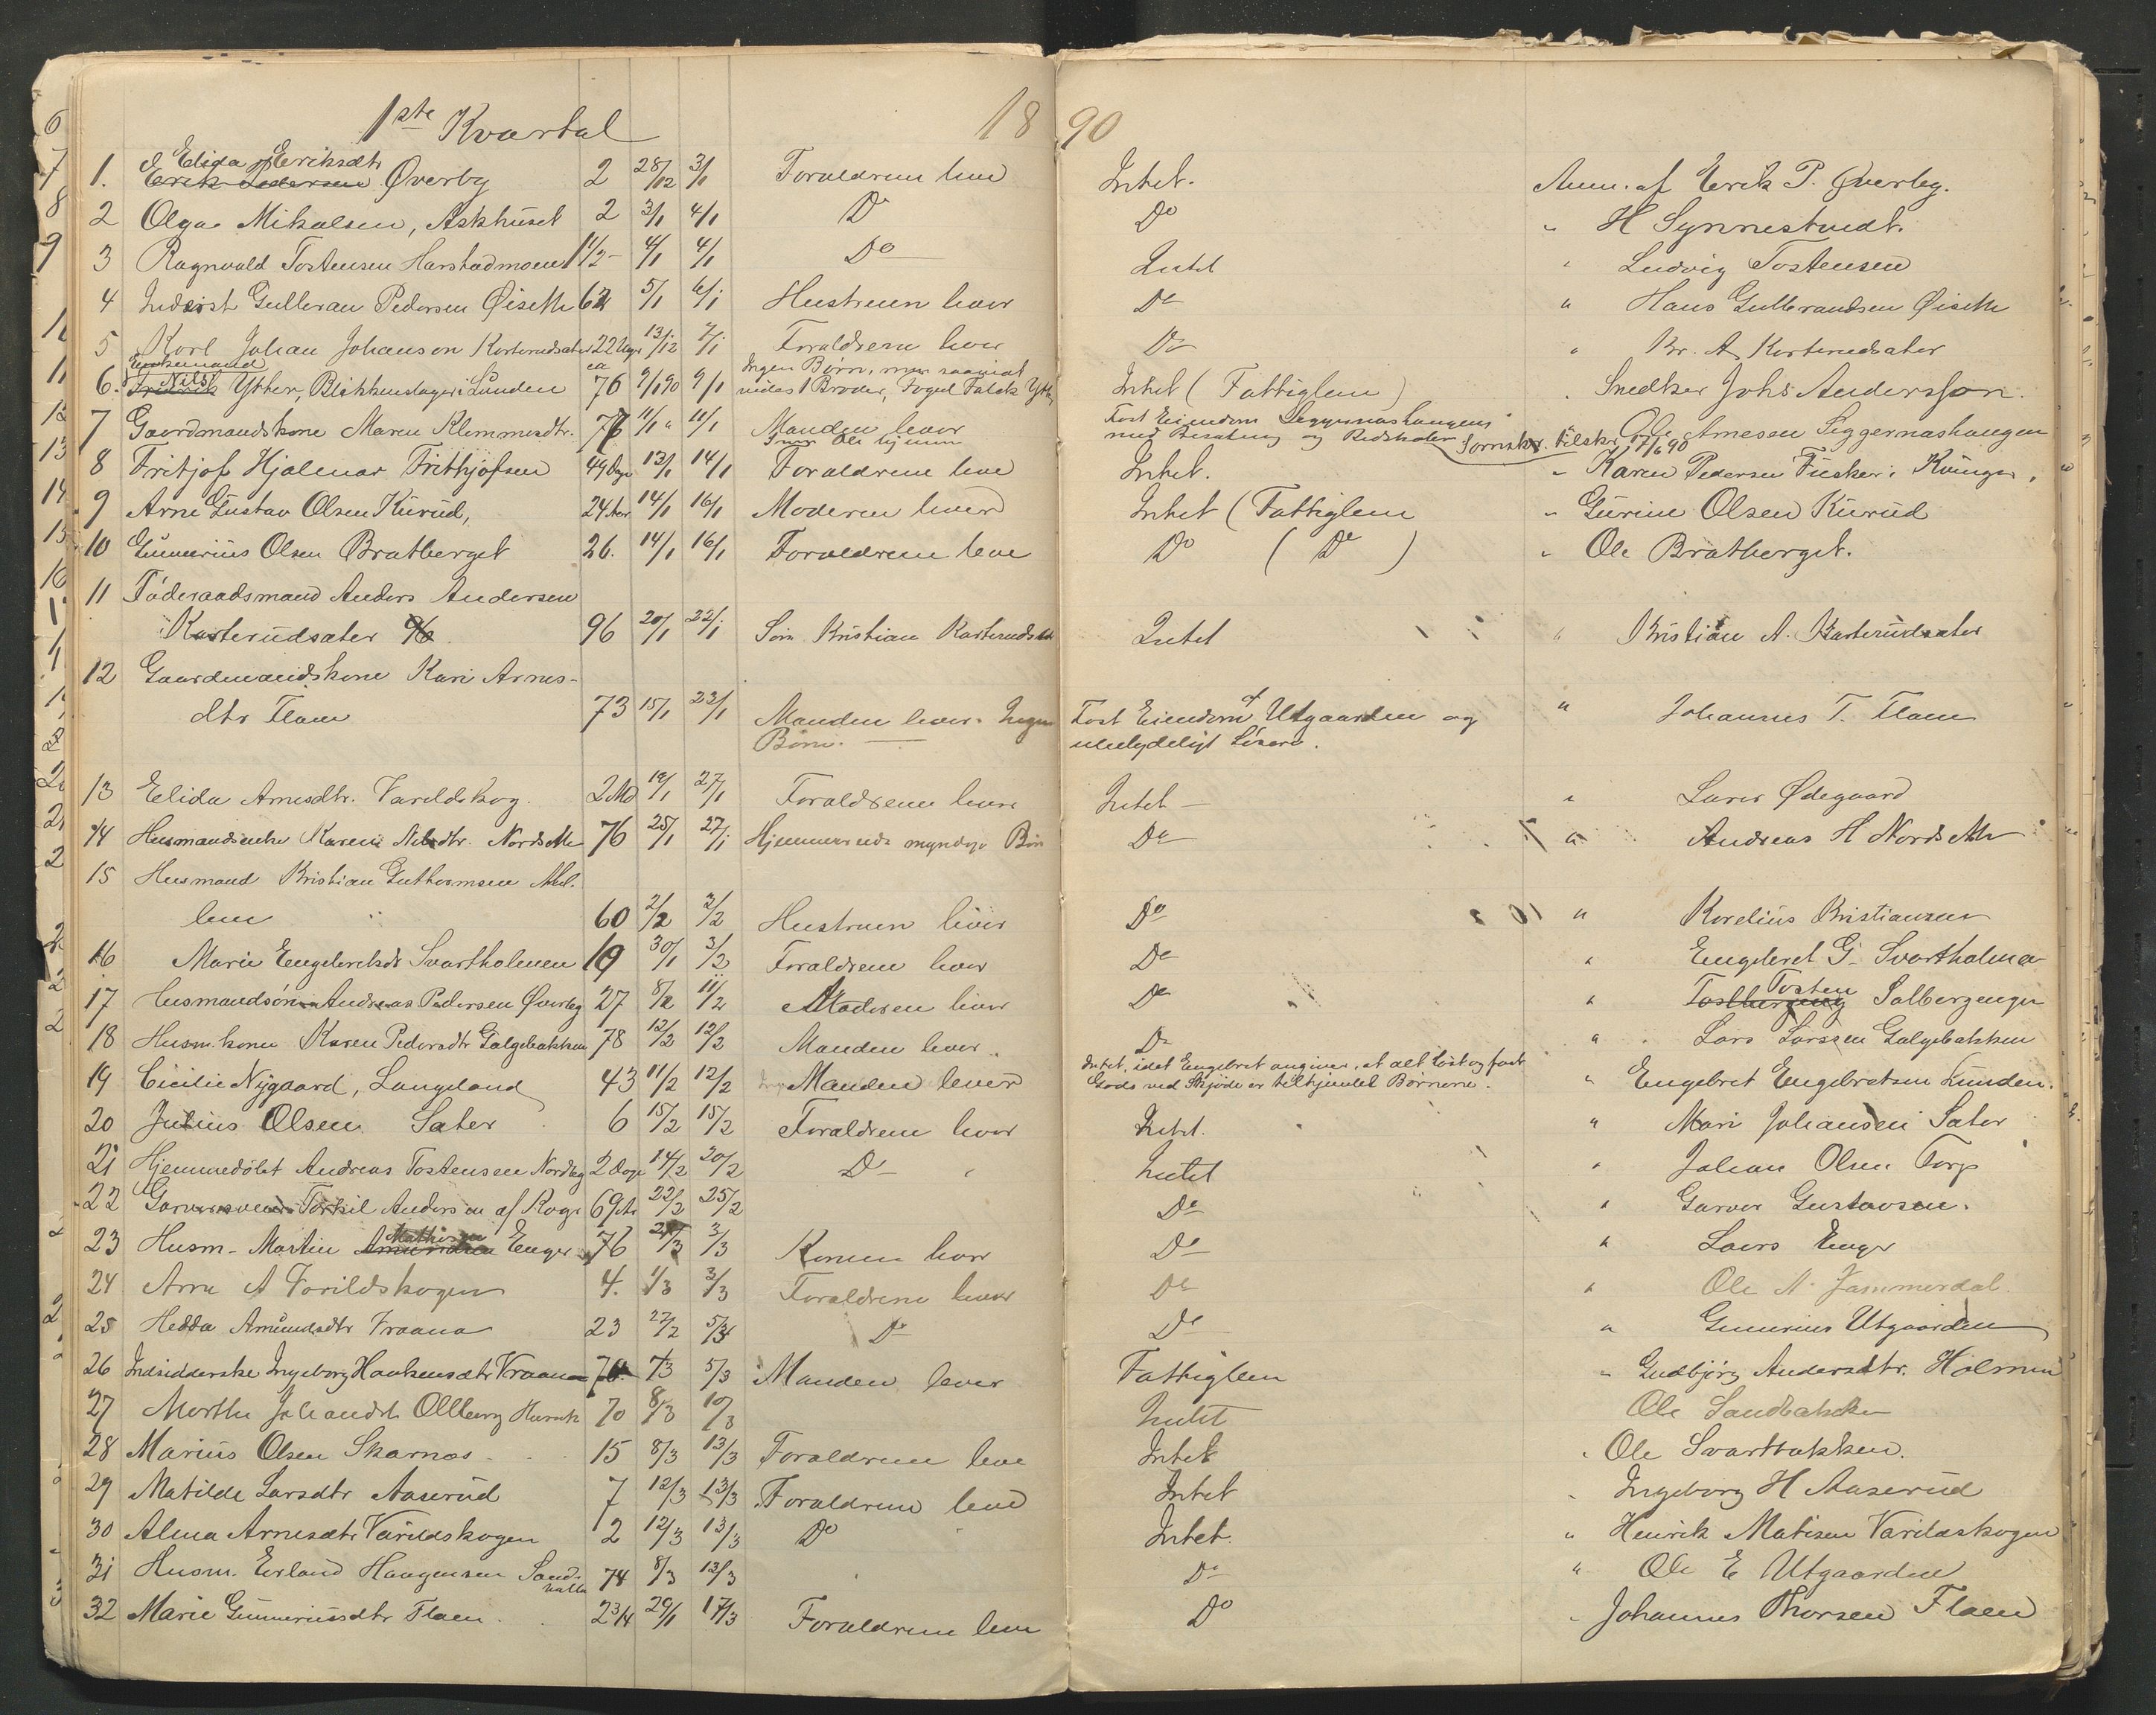 1ste Kvartal 1890
Elida Eriksdtr
1. Erik Pedersen Øverby 2 28/12 3/1 Forældrene leve Intet. Anm. af Erik P. Øverby.
2 Olga Mikalsen, Askhuset 2 3/1 4/1 Do Do " H Synnestvedt.
3 Ragnvald Tostensen Harstadmoen 1 1/2 - 4/1 4/1 Do Intet " Ludvig Tostensen
4 Inderst Gulleran Pedersen Øiseth 62 5/1 6/1 Hustruen lever Do " Hans Gulbrandsen Øiseth
5 Karl Johan Johanson Korterudsæter 22 Uger 13/12 7/1 Forældrene lever Do " Kr. A. Korterudsæter
Enkemand Nils ca Ingen Børn, men saavidt
6. Fredrik Ytter, Blikkenslager i Lunden 76 9/1 90 9/1 vides 1 Broder, Foged Falck Ytter Intet (Fattiglem) " Snedker Johs Andersson.
Fast Eiendom Seggernæshaugen
7 Gaardmandskone Maren Klemmesdtr. 76 11/1 " 11/1 Manden lever med Besætning og Redskaber Ole Arnesen Seggernæshaugen
17/6 90
8 Fritjof Hjalmar Frithjofsen 49 Dage 13/1 14/1 Forældrene leve Intet. " Karen Pedersen
9 Arne Gustav Olsen Kurud, 24 Aar 14/1 16/1 Moderen lever Intet (Fattiglem " Gurine Olsen Kurud
10 Gunnerius Olsen Bratberget 26. 14/1 16/1 Forældrene leve Do (Do) " Ole Bratberget.
11 Føderaadsmand Anders Andersen
Korterudsæter 96 96 20/1 22/1 Søn Kristian Korterudsæter Intet " Kristian A. Korterudsæter
12 Gaardmandskone Kari Arnes-
dtr Flaen 73 15/1 23/1 Manden lever. Ingen Fast Eiendom af Utgaarden og " Johannes T. Flaen
Børn. — ubetydeligt Løsøre.
13 Elida Arnesdtr. Varildskog. 2 Md 19/1 27/1 Forældrene leve Intet — " Lars Ødegaard
14 Husmandsenke Karen Nilsdtr. Nordseth 76 25/1 27/1 Hjemmeværende myndige Børn Do " Andreas H Nordseth
15 Husmand Kristian Guthormsen
len 60 2/2 3/2 Hustruen lever Do " Korelius Kristiansen
16 Marie Engebretsdr Svartholmen 19 30/1 3/2 Forældrene lever Do " Engebret G. Svartholmen
Tosten
17 Husmandsøn Andreas Pedersen Øverby 27 8/2 11/2 Moderen lever Do " Solbergenger
18 Husm. kone Karen Pedersdtr Galgebakken 78 12/2 12/2 Manden lever Do " Lars Larssen Galgebakken
Intet, idet Engebret angiver, at alt Løst og fast
19 Cicilie Nygaard, Langeland 43 11/2 12/2 Manden lever Gods ved Skjøde er tilhjemlet Børnene. " Engebret Engebretsen Lunden.
20 Julius Olsen Sæter 6 15/2 15/2 Forældrene lever Intet. " Mari Johansen Sæter
21 Hjemmedøbt Andreas Tostensen Nordby 2 Dage 14/2 20/2 Do Intet " Johan Olsen Torp
22 Garversvend Torkil Anderson af Koge 69 Aar 22/2 25/2 Do " Garver Gustavsen.
Mathisen
23 Husm- Martin Amundsen Enger 76 3/3 Konen lever Do " Lars Enger
24 Arne A Varildskogen 4. 1/3 3/3 Forældrene lever Do " Ole A. Jammerdal.
25 Hedda Amundsdtr Vraana 23 27/2 5/3 Do Do " Gunerius Utgaarden
26 Indsidderske Ingeborg Haakensdtr Vraana 70 1/3 5/3 Manden lever Fattiglem " Gudbjørg Andersdtr. Holmen
27 Marthe Johansdt Ollberg 70 8/3 10/3 Intet Ole Sandbakken
28 Marius Olsen Skarnæs 15 8/3 13/3 Forældrene leve Intet " Ole Svartbakken.
29 Matilde Larsdtr Aaserud 7 12/3 13/3 Forældrene leve Intet " Ingeborg H Aaserud
30 Alma Arnesdtr Varildskogen 2 12/3 13/3 Do Intet. " Henrik Matisen Varildskogen
31 Husm. Erland Haagensen Sand- 74 8/3 13/3 Do " Ole E Utgaarden
32 Marie Gunneriusdtr Flaen. 2 3/4 29/1 17/3 Forældrene leve Do " Johannes Thorsen Flaen